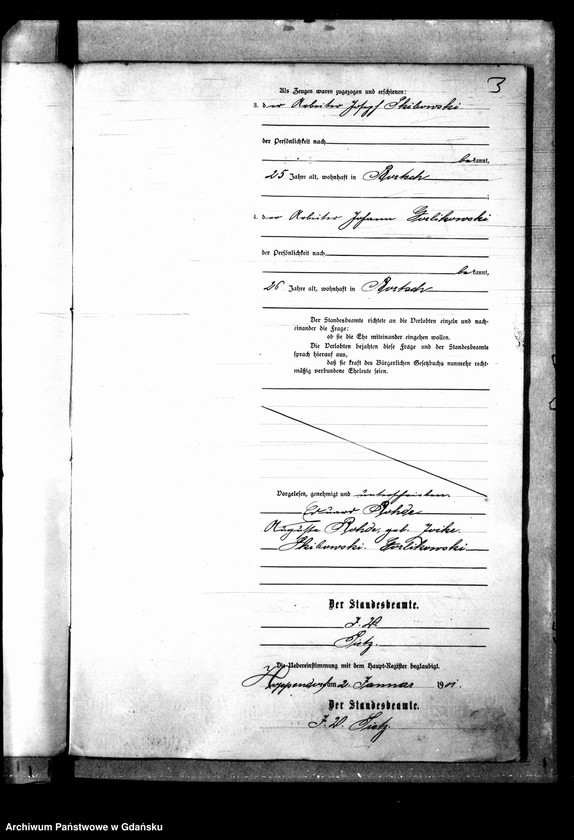 3
Als Zeugen waren zugezogen und erschienen:
3. der Arbeiter Josef Skibowski
der Persönlichkeit nach
bekannt,
25 Jahre alt, wohnhaft in Bortsch
;
4. der Arbeiter Johann Gorlikowski
der Persönlichkeit nach
bekannt,
26 Jahre alt, wohnhaft in Bortsch
Der Standesbeamte richtete an die Verlobten einzeln und nach-
einander die Frage:
ob sie die Ehe miteinander eingehen wollen.
Die Verlobten bejahten diese Frage und der Standesbeamte
sprach hierauf aus,
daß sie kraft des Bürgerlichen Gesetzbuchs nunmehr recht-
mäßig verbundene Eheleute seien.
Vorgelesen, genehmigt und unterschrieben
Eduard Rohde
Auguste Rohde, geb.
Skibowski. Gorlikowski
Der Standesbeamte.
I. V.
Tietz.
Die Uebereinstimmung mit dem Haupt-Register beglaubigt.
Hoppendorf am 2. Januar 1901.
Der Standesbeamte.
I. V. Tietz
Archiwum Państwowe w Gdańsku